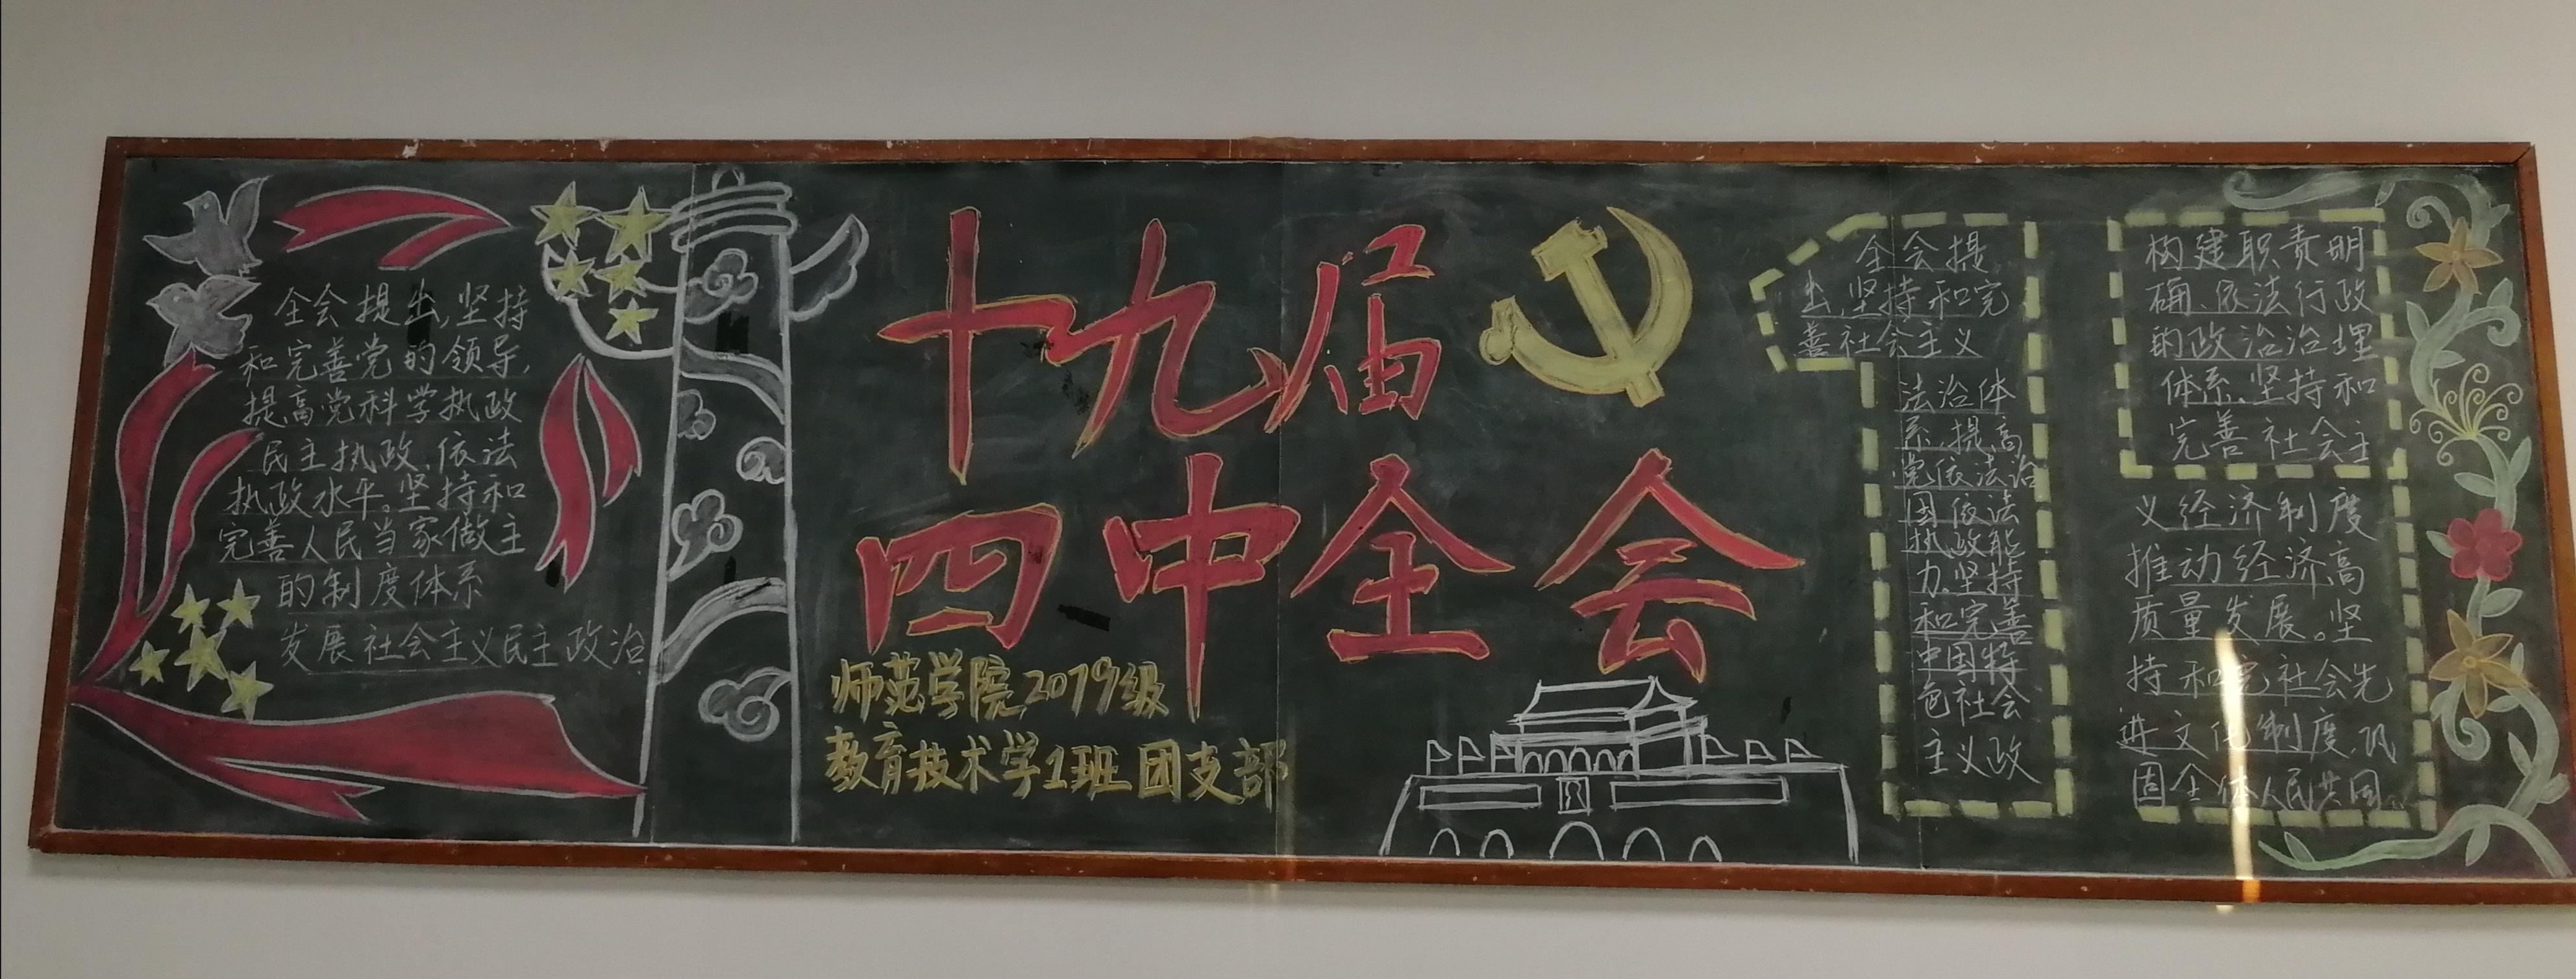 全会提出,坚持
和完善党的领导,
提高党科学执政
民主执政、依法
执政水平。坚持和
完善人民当家做主
的制度体系
发展社会主义民主政治
十九届
四中全会
师范学院2019级
教育技术学1班团支部
全会提
出,坚持和完
善社会主义
法治体
系,提高
党依法治
国依法
执政能
力.坚持
和完善
中国特
色社会
主义政
构建职责明
确、依法行政
的政治治理
体系.坚持和
完善社会主
义经济制度
推动经济高
质量发展。坚
持和完社会先
进文化制度,巩
固全体人民共同